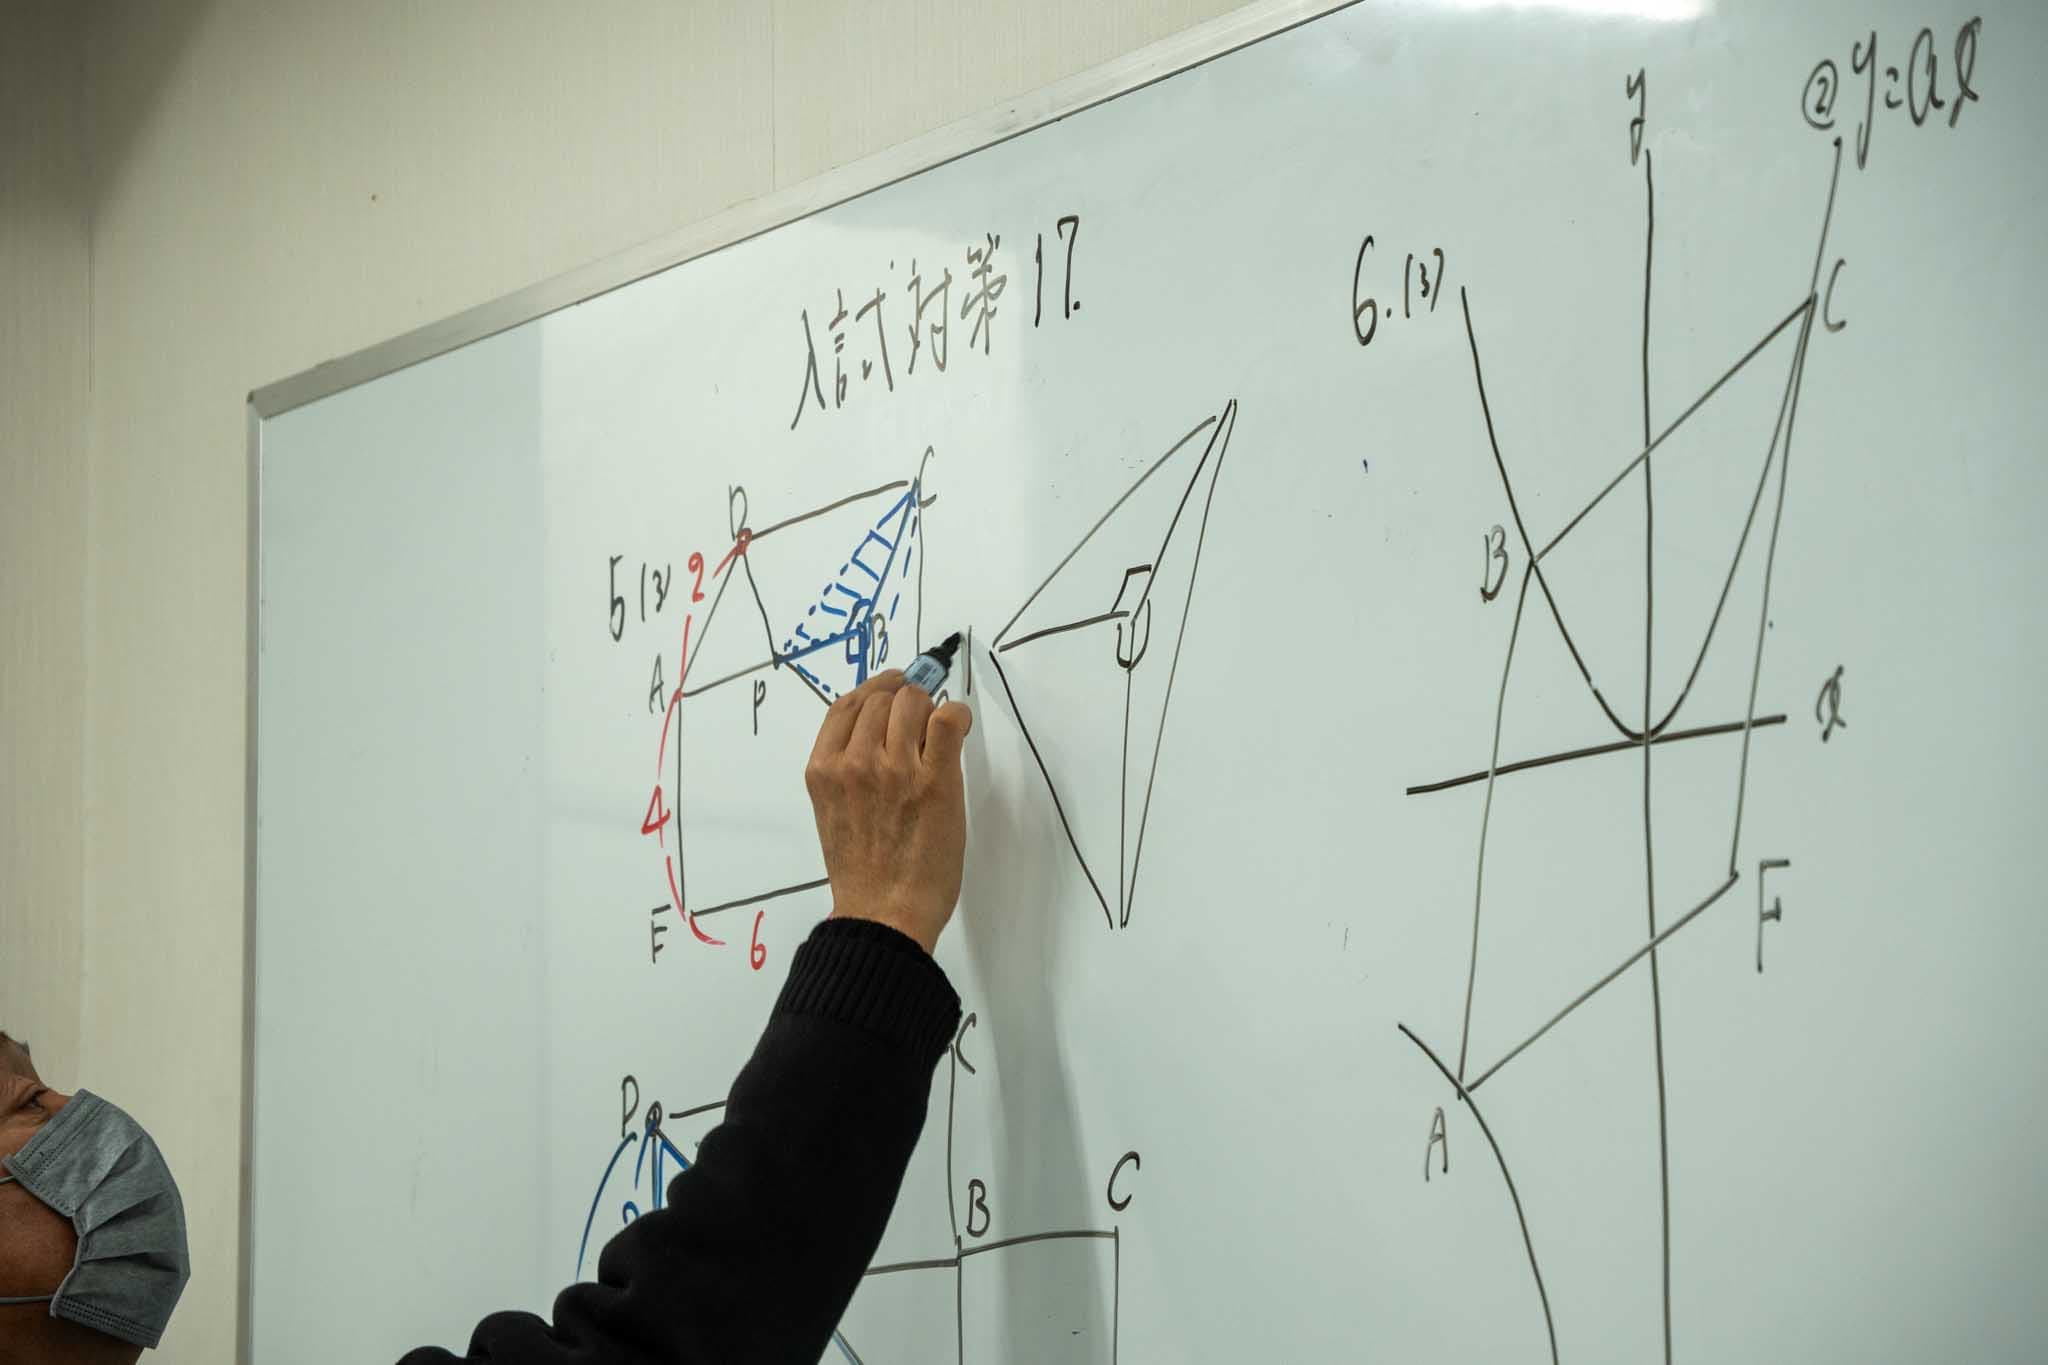 入試対策17.
5(3)
D
C
2
A
P
B
4
E
6
C
D
2
B
C
6.(3)
y
② y=ax
C
B
x
F
A